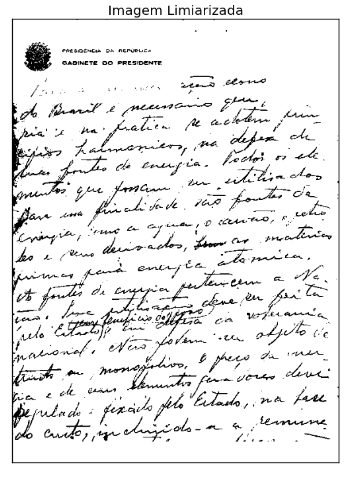 Imagem Limiarizada
PRESIDÊNCIA DA REPÚBLICA
GABINETE DO PRESIDENTE
ação como
do Brasil é necessario que,
e na pratica se adotem, prin
cipios harmonicos, na defesa de
suas fontes de energia. Todos os ele
mentos que possam ser utilisados
para essa finalidade são fontes de
energia, como a agua, o carvão, o petro
leo e seus derivados, as materias
primas para energia atomica.
fontes de energia pertencem a Na
ção. Essa utilisação deve ser feita
pelo Estado, em defesa da soberania
nacional. Não podem ser objeto de
monopolios. O preço da ener
gia e de seus elementos geradores deve
regulado e fixado pelo Estado, na base
do custo, incluindo-se a remune